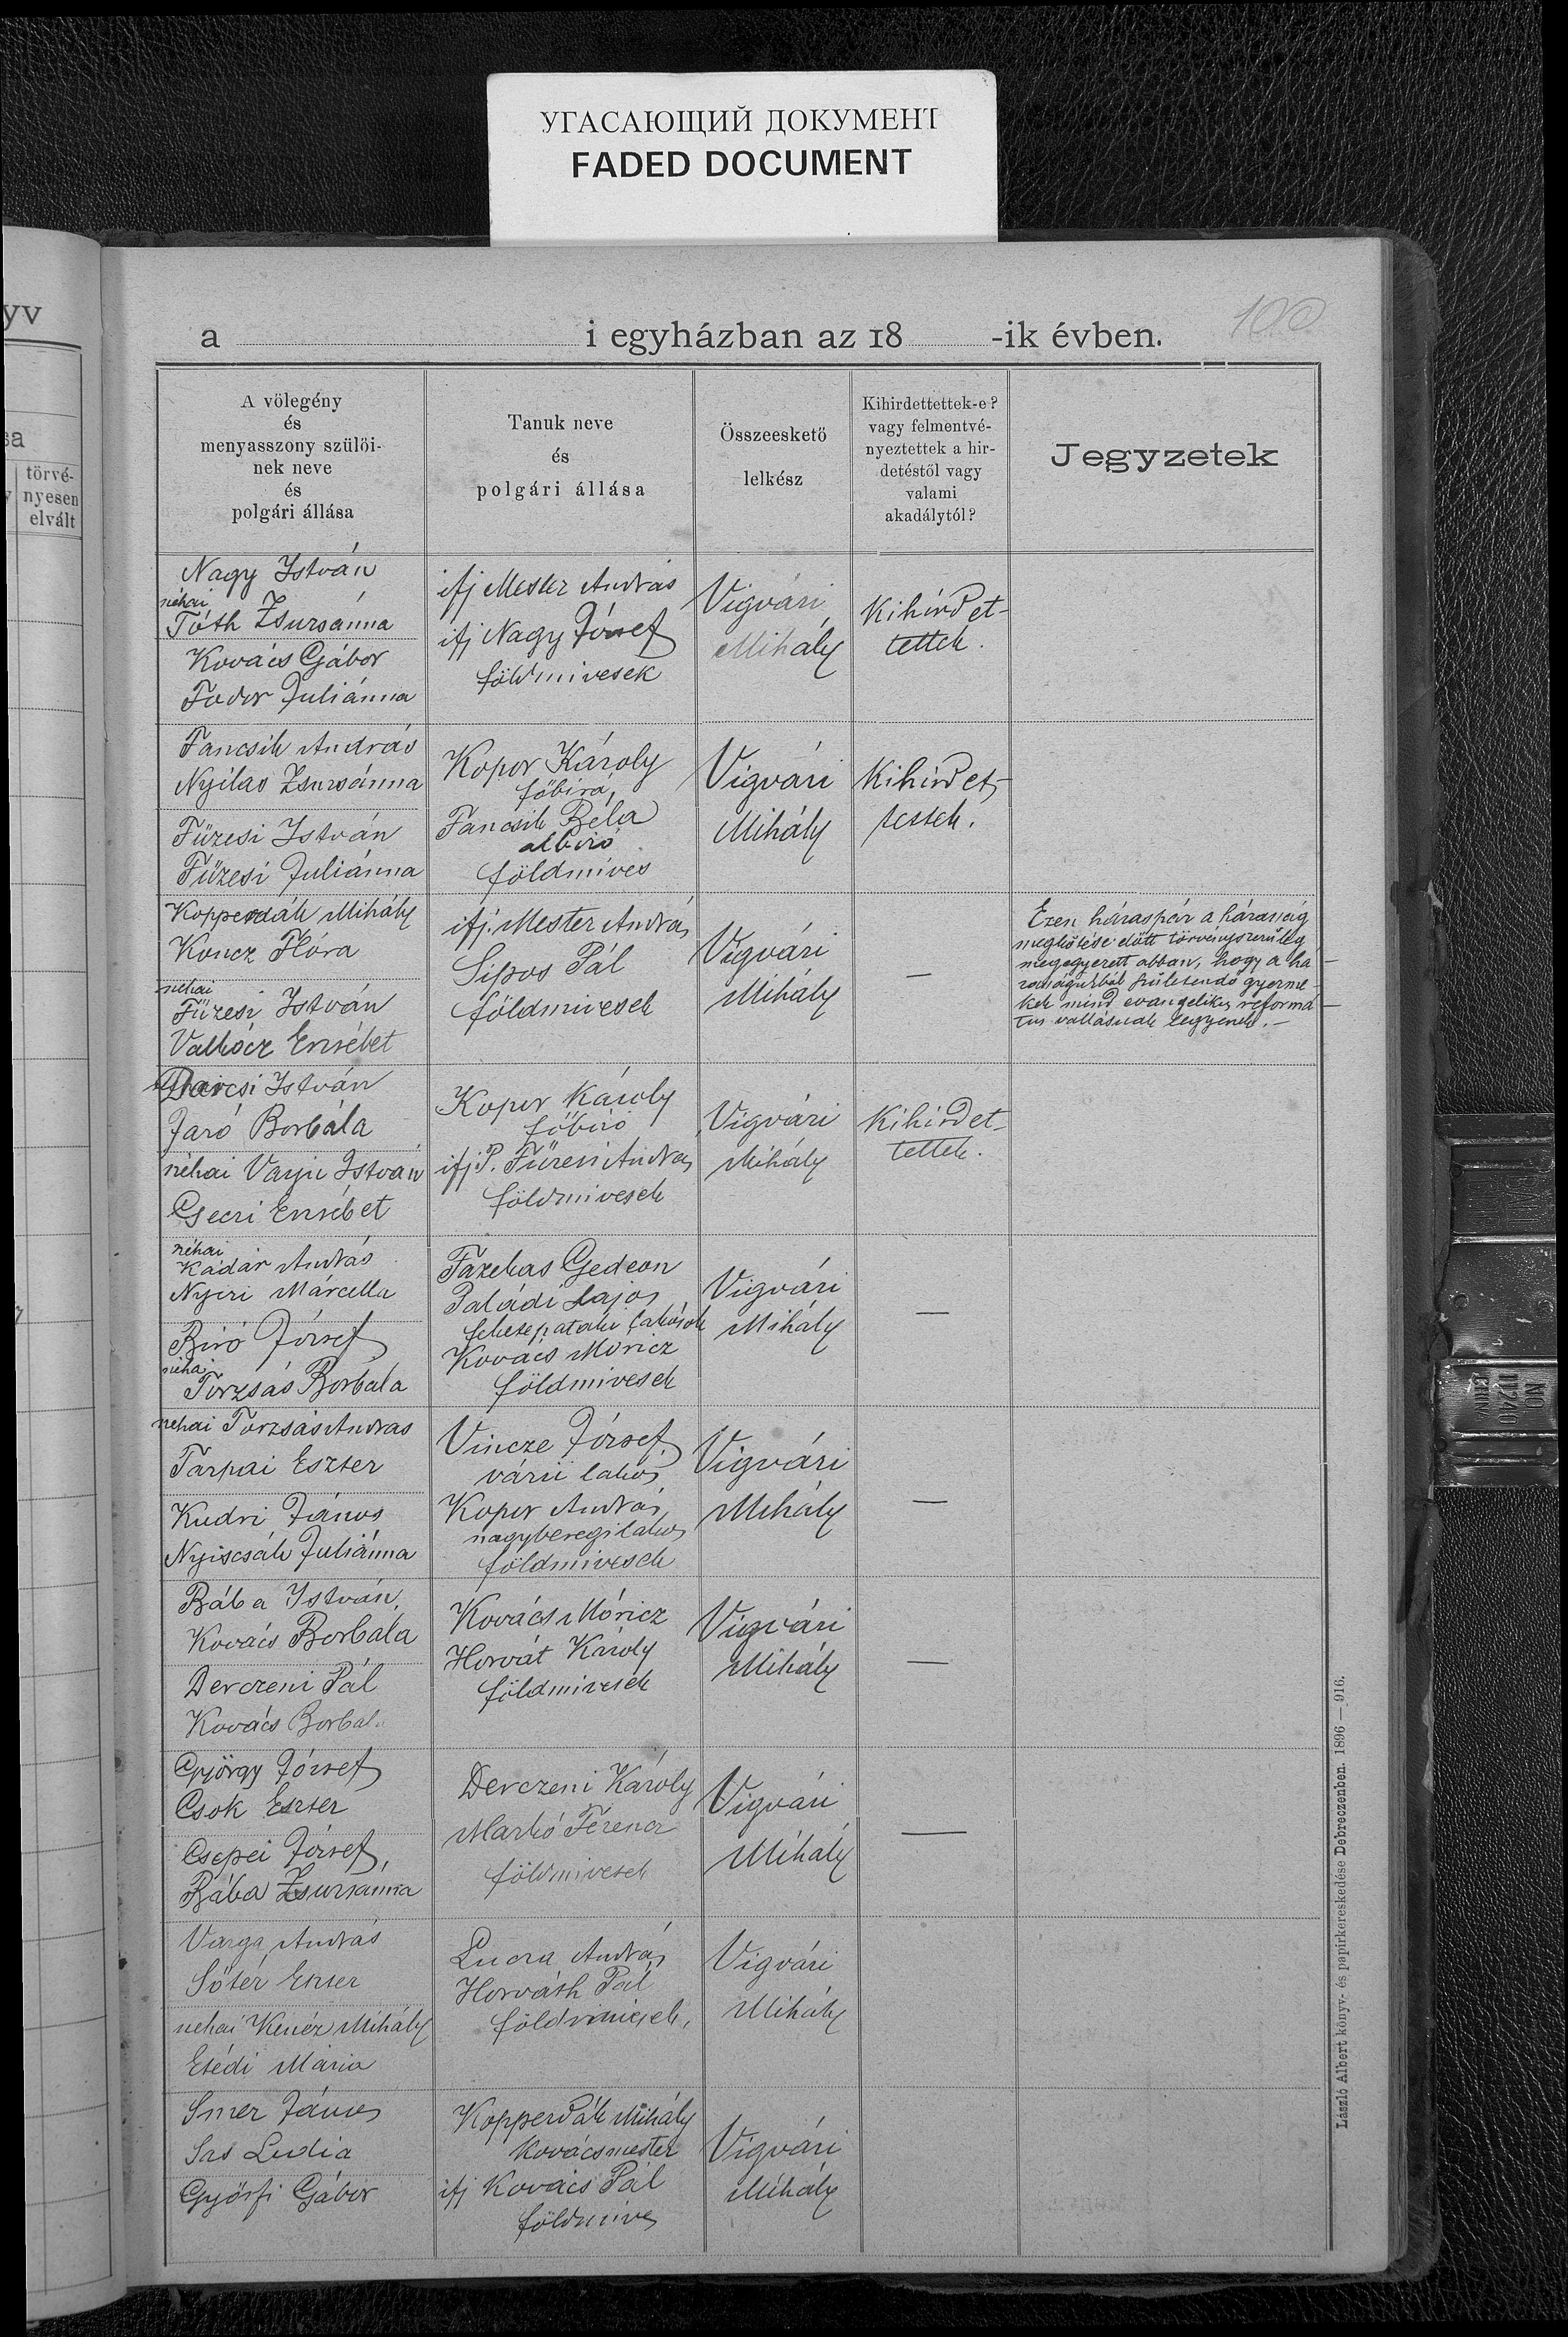 УГАСАЮЩИЙ ДОКУМЕНТ
FADED DOCUMENT
yv
törvé-
nyesen
elvált
100
a i egyházban az 18 -ik évben.
A völegény
és
menyasszony szülöi-
nek neve
és
polgári állása
Tanuk neve
és
polgári állása
Összeeskető
lelkész
Kihirdettettek-e?
vagy felmentvé-
nyeztettek a hir-
detéstől vagy
valami
akadálytól?
Jegyzetek
Nagy István
néhai
Tóth Zsuzsánna
Kovács Gábor
Fodor Juliánna
ifj Mester András
ifj Nagy József
földmivesek
Vigvári
Mihály
Kihirdet-
tettek.
Fancsik András
Nyilas Zsuzsánna
Füzesi István
Füzesi Juliánna
Kopor Károly
főbiró,
Fancsik Béla
albiró
földmives
Vigvári
Mihály
Kihirdet-
tettek.
Kopperdák Mihály
Koncz Flóra
néhai
Füzesi István
Valkócz Erzsébet
ifj. Mester András
Sipos Pál
földmivesek
Vigvári
Mihály
—
Ezen házaspár a házasság
megkötése előtt törvényszerűleg
megegyezett abban, hogy a há-
zasságukból születendő gyerme-
kek mind evangelikus reformá-
tus vallásuak legyenek. —
Darcsi István
Jaró Borbála
néhai Varju István
Gecsi Erzsébet
Kopor Károly
főbiró
ifj P. Füzesi András
földmivesek
Vigvári
Mihály
Kihirdet-
tettek.
néhai
Kádár András
Nyiri Márcella
Biró József
néhai
Torzsás Borbála
Fazekas Gedeon
Paládi Lajos
feketepataki lakosok
Kovács Móricz
földmivesek
Vigvári
Mihály
—
néhai Torzsás András
Tarpai Eszter
Kudri János
Nyiscsák Juliánna
Vincze József
várii lakos
Kopor András
nagyberegi lakos
földmivesek
Vigvári
Mihály
—
Bába István,
Kovács Borbála
Derczeni Pál
Kovács Borbála
Kovács Móricz
Horvát Károly
földmivesek
Vigvári
Mihály
—
György József
Csok Eszter
Csepei József,
Bába Zsuzsanna
Derczeni Károly
Markó Ferencz
földmivesek
Vigvári
Mihály
—
Varga András
Sőtér Eszter
néhai Kenéz Mihály
Esédi Mária
András
Horváth Pál
földmivesek.
Vigvári
Mihály
János
Sas Ludia
Győrfi Gábor
Kopperdák Mihály
kovácsmester
ifj Kovács Pál
földmives
Vigvári
Mihály
László Albert könyv- és papirkereskedése Debreczenben. 1896 — 916.
NO
11240